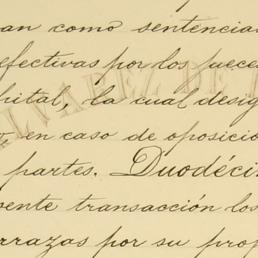 an como sentencia
efectivas por los juece
pital, la cual desig
en caso de oposicio
partes. Duodéci
sente transacción los
errazas por su prop
ALVAREZ DE